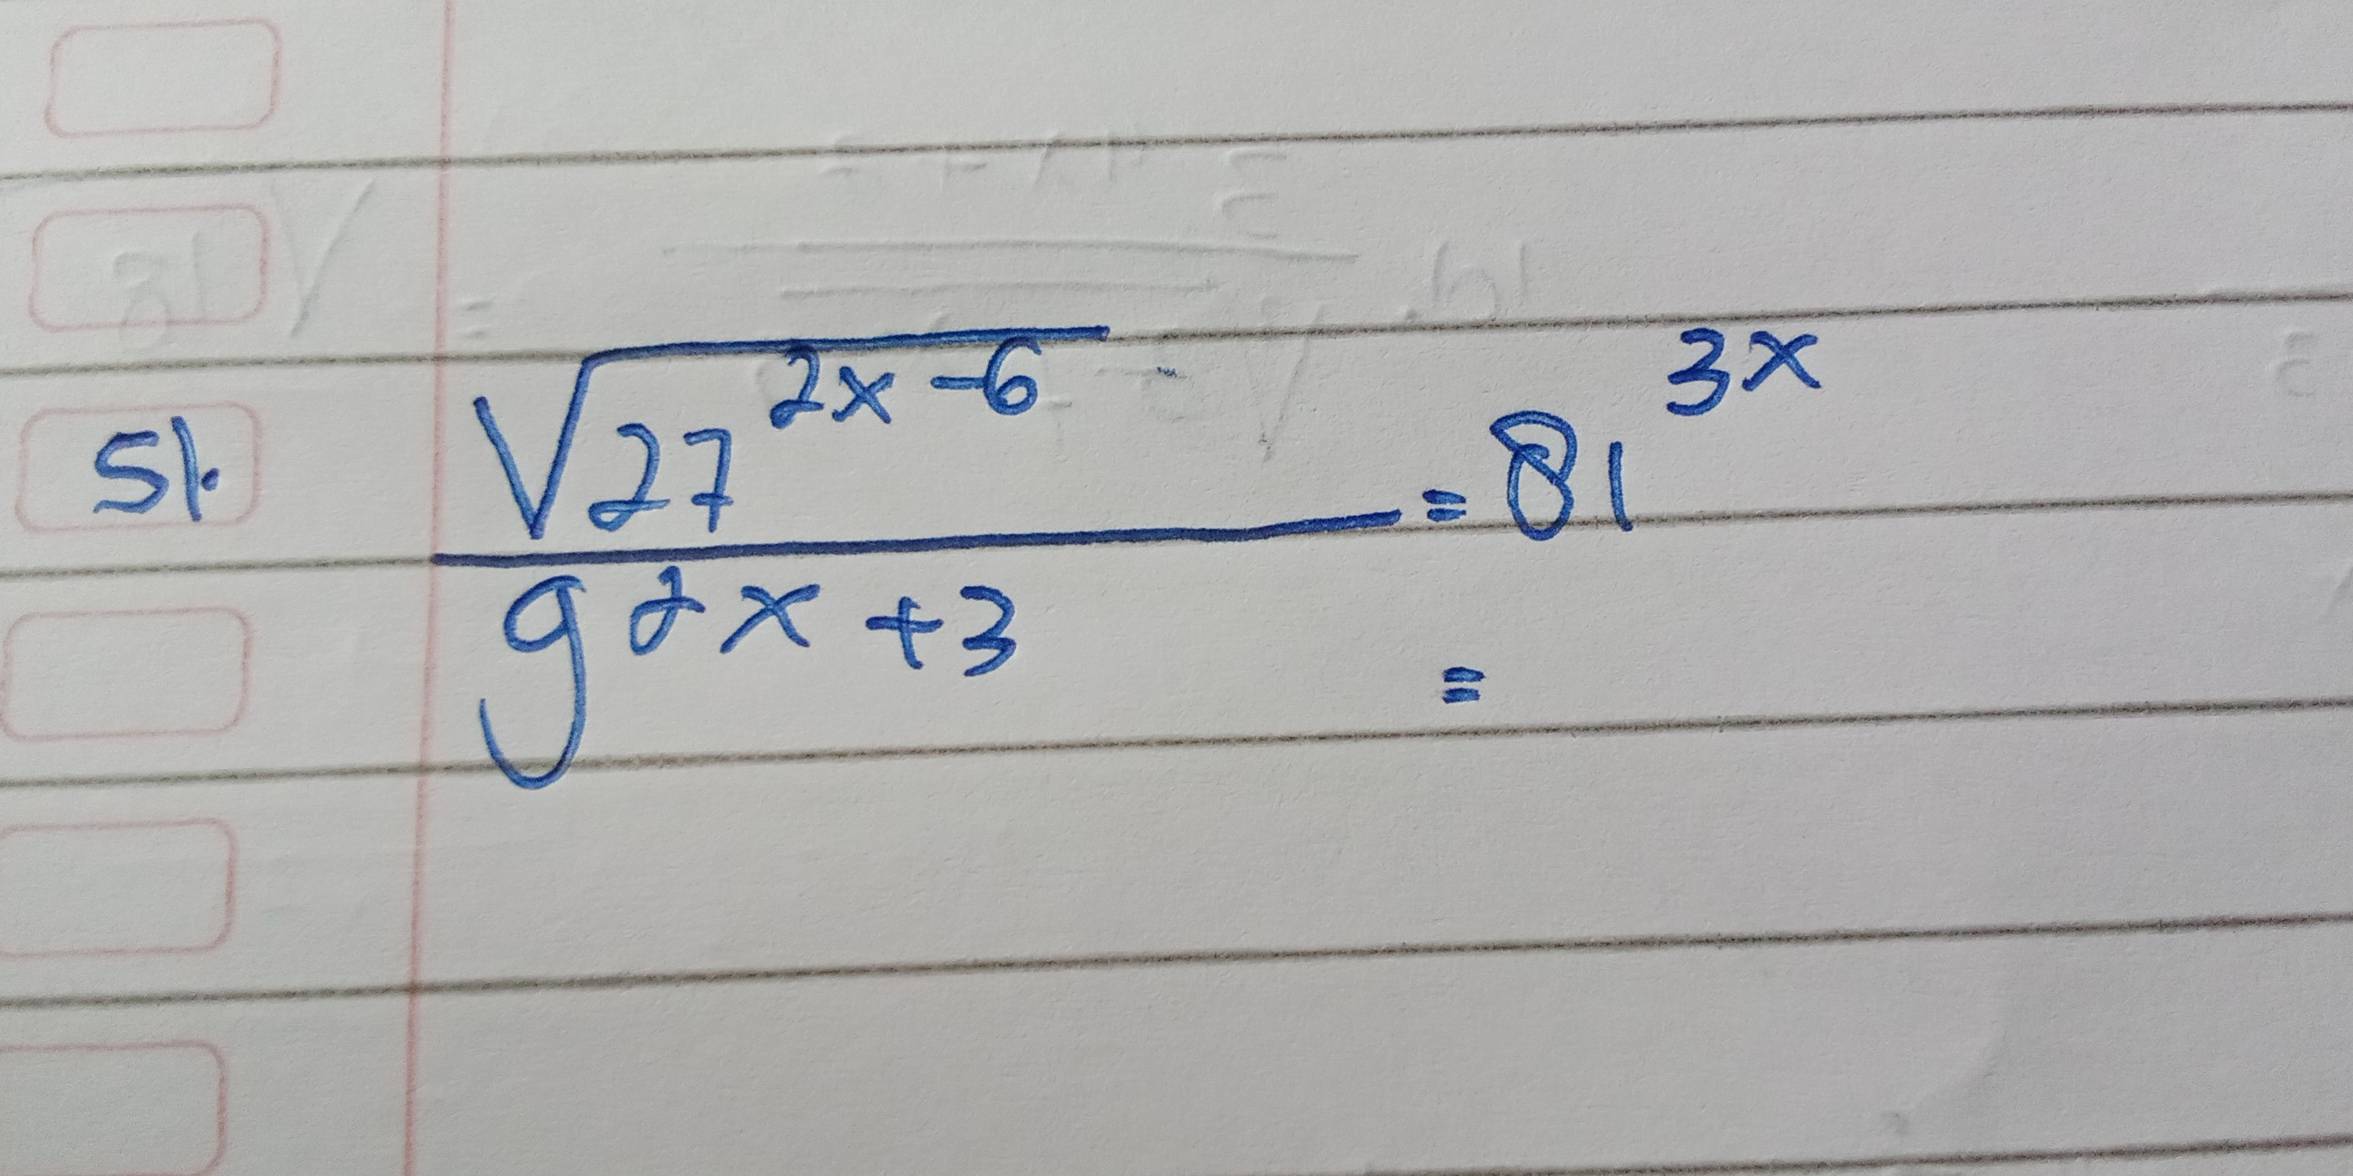 51. √27^(2x-6) / 9^(2x+3) = 81^(3x)
=